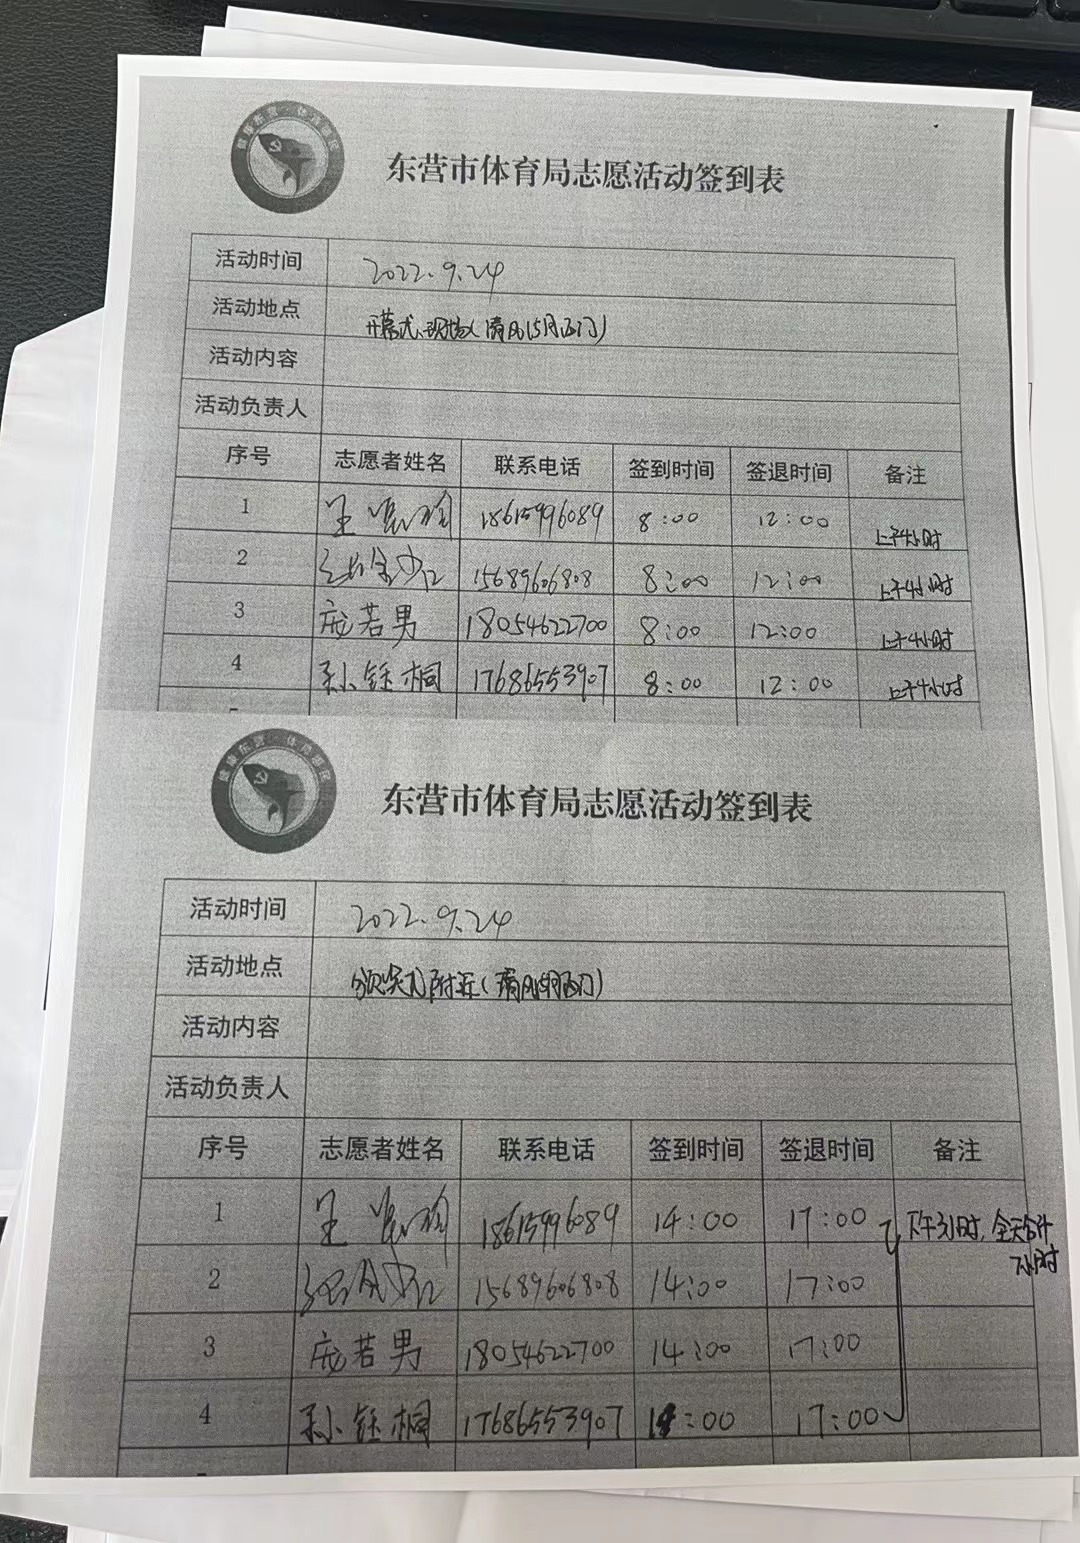 东营市体育局志愿活动签到表
活动时间 2022.9.24
活动地点 开幕式现场(清风湖西门)
活动内容
活动负责人
序号 志愿者姓名 联系电话 签到时间 签退时间 备注
1 王 18615996089 8:00 12:00 上午4小时
2 15689606808 8:00 12:00 上午4小时
3 庞若男 18054622700 8:00 12:00 上午4小时
4 孙钰桐 17686553907 8:00 12:00 上午4小时
东营市体育局志愿活动签到表
活动时间 2022.9.24
活动地点 颁奖式附近(清风湖西门)
活动内容
活动负责人
序号 志愿者姓名 联系电话 签到时间 签退时间 备注
1 王 18615996089 14:00 17:00 下午3小时,全天合计
7小时
2 15689606808 14:00 17:00
3 庞若男 18054622700 14:00 17:00
4 孙钰桐 17686553907 14:00 17:00